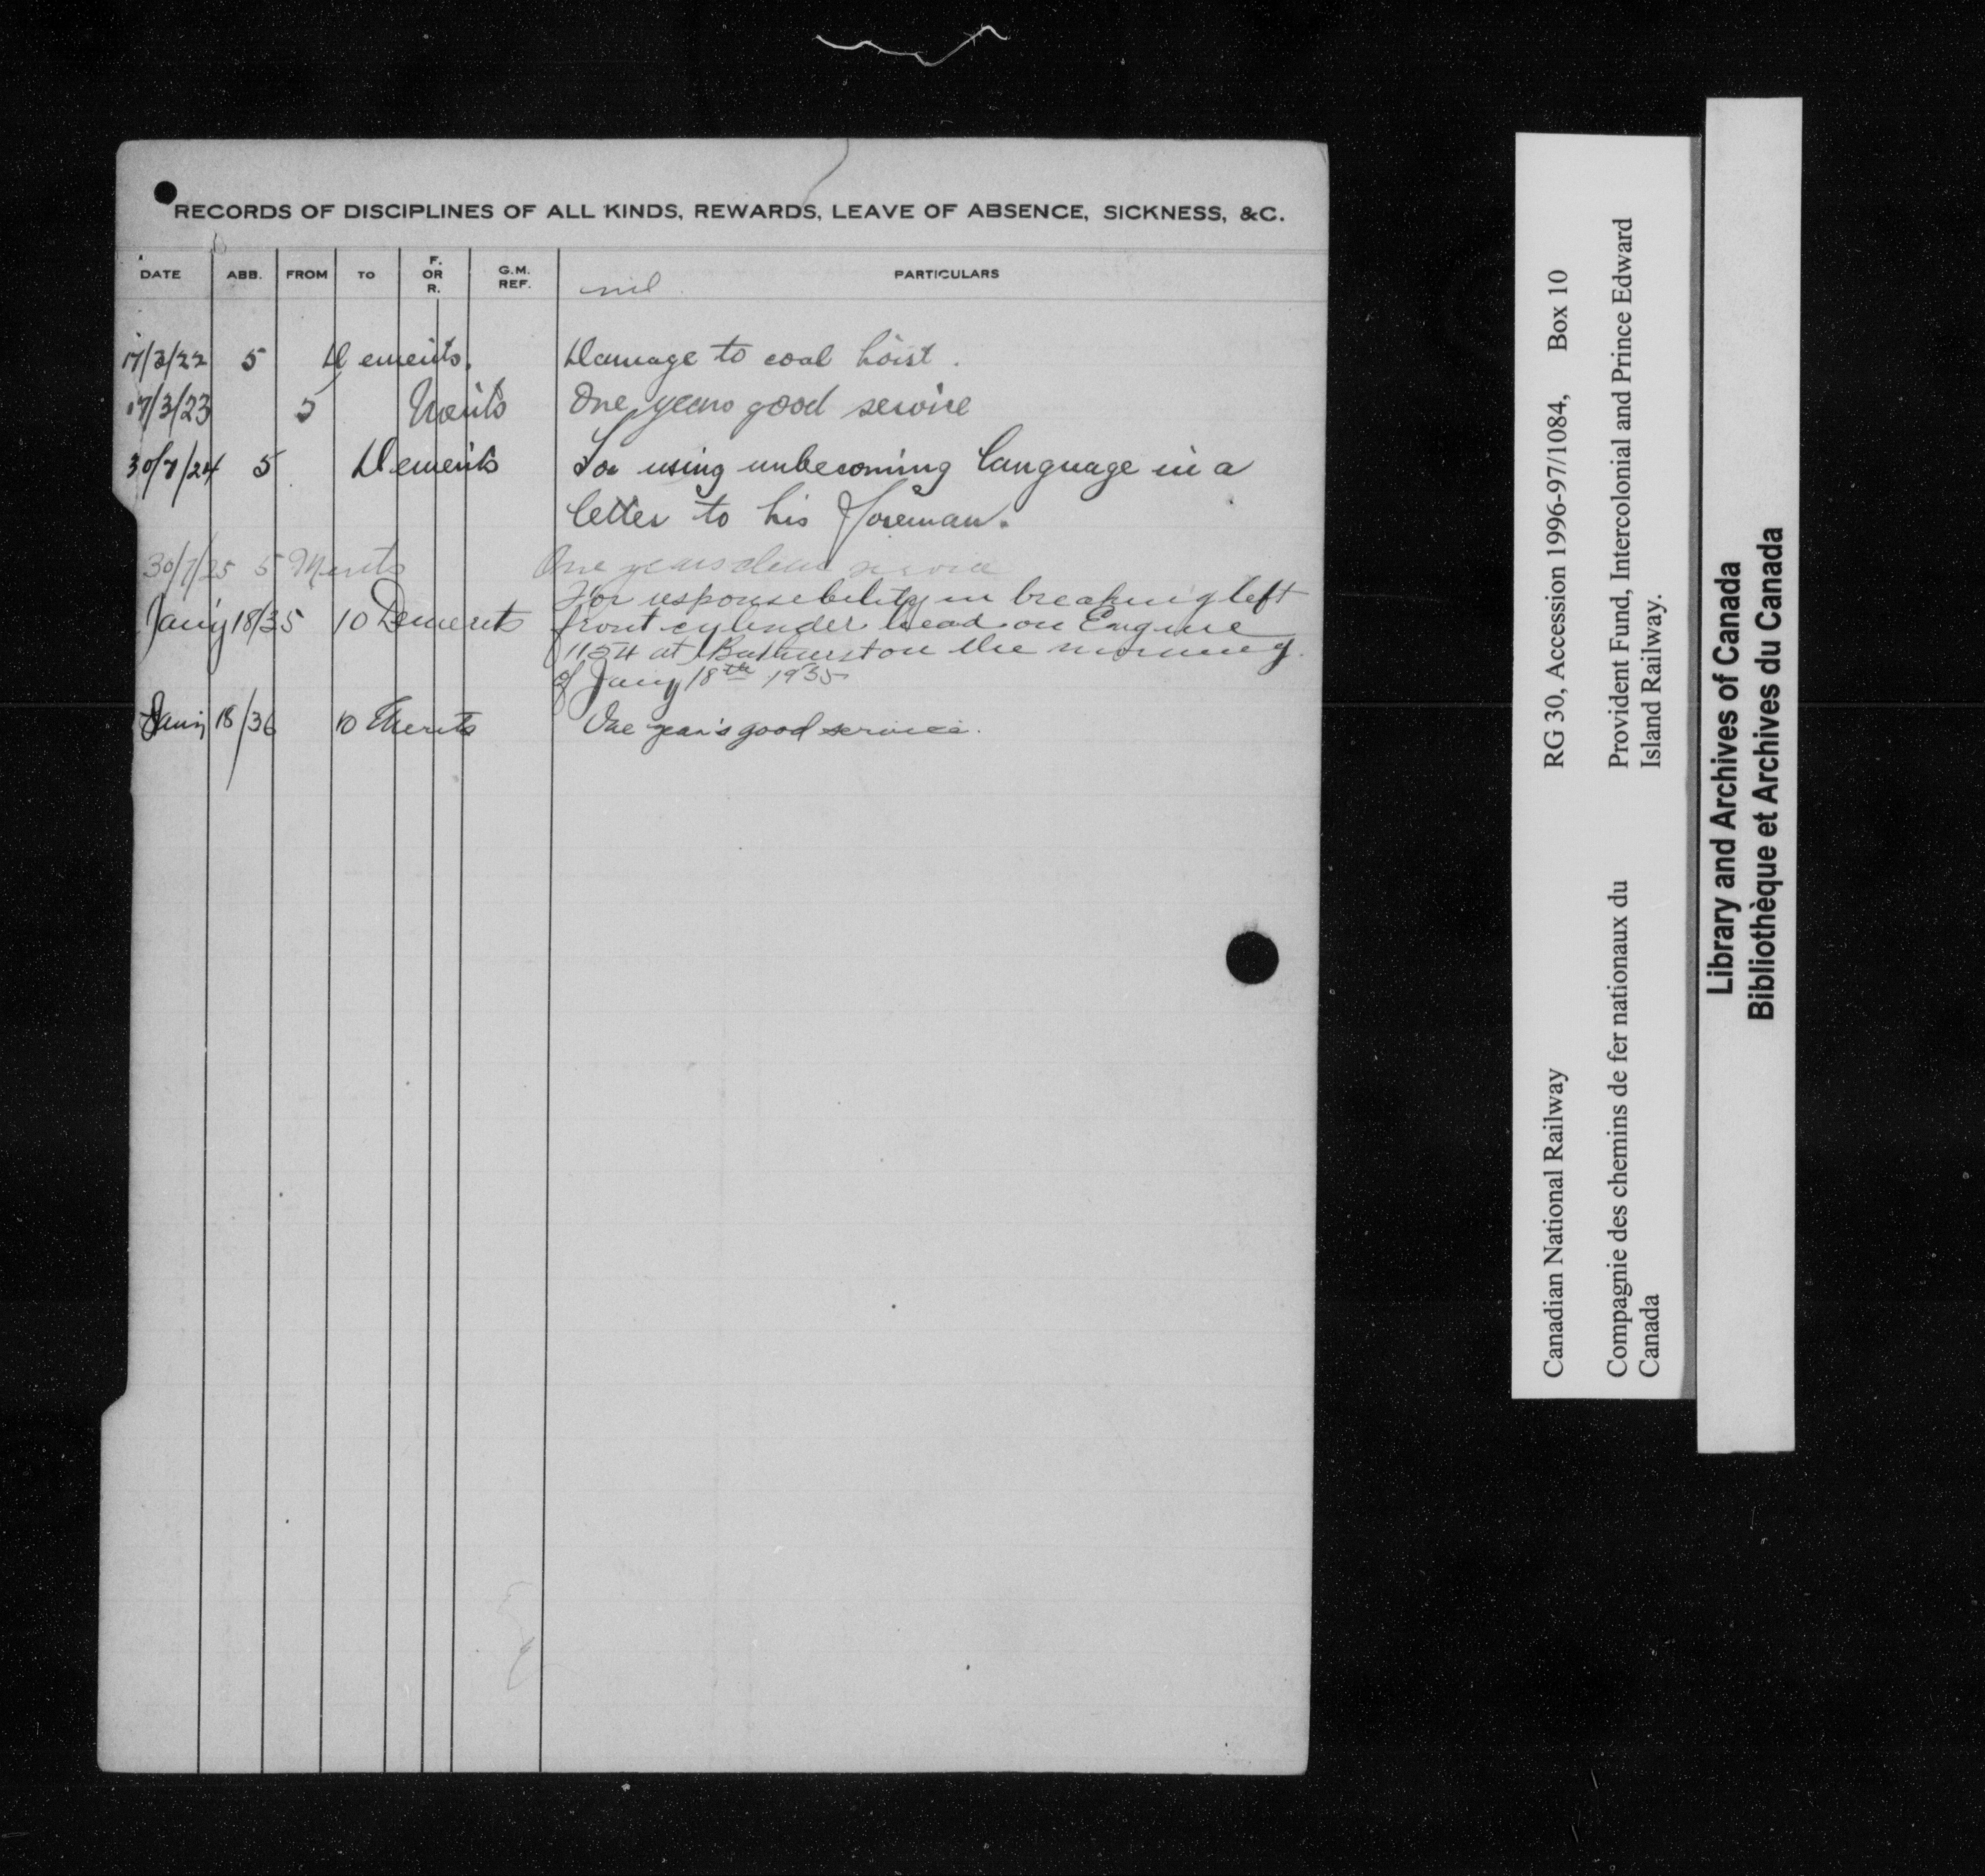 RECORDS OF DISCIPLINES OF ALL KINDS, REWARDS, LEAVE OF ABSENCE, SICKNESS, &C.
DATE ABB. FROM TO F. OR R. G.M. REF. PARTICULARS
nil
17/3/22 5 Demerits. Damage to coal hoist.
17/3/23 5 Merits One years good service
30/7/24 5 Demerits For using unbecoming language in a
letter to his Foreman.
30/7/25 5 Merits One years clear service
For responsebility in breaking left
Jany 18/35 10 Demerits front cylinder head on Engine
1154 at Bathurst on the morning
of Jany 18th 1935
Jany 18/36 10 Merits One year's good service.
Canadian National Railway RG 30, Accession 1996-97/1084, Box 10
Compagnie des chemins de fer nationaux du
Canada
Provident Fund, Intercolonial and Prince Edward
Island Railway.
Library and Archives of Canada
Bibliothèque et Archives du Canada